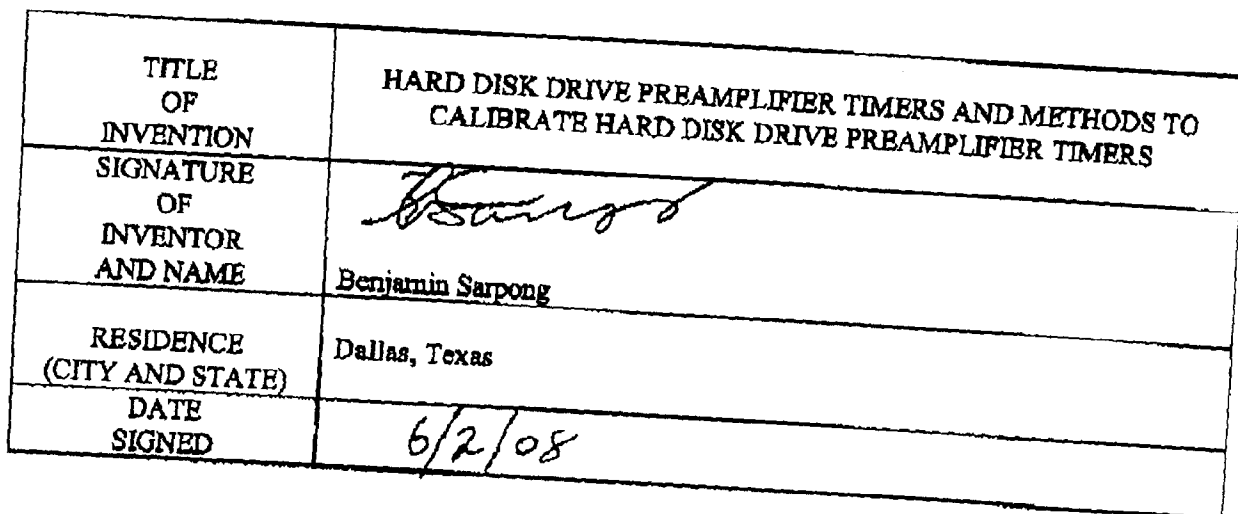 TITLE
OF
INVENTION
HARD DISK DRIVE PREAMPLIFIER TIMERS AND METHODS TO
CALIBRATE HARD DISK DRIVE PREAMPLIFIER TIMERS
SIGNATURE
OF
INVENTOR
AND NAME
Benjamin Sarpong
RESIDENCE
(CITY AND STATE)
Dallas, Texas
DATE
SIGNED
6/2/08